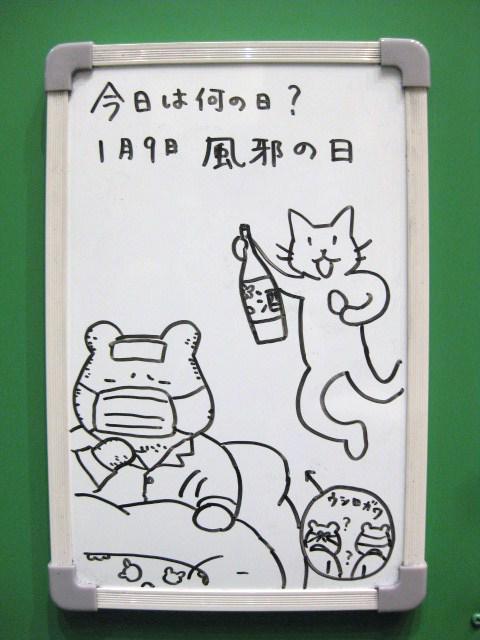 今日は何の日?
1月9日 風邪の日
酒
ウシロガワ
?
?